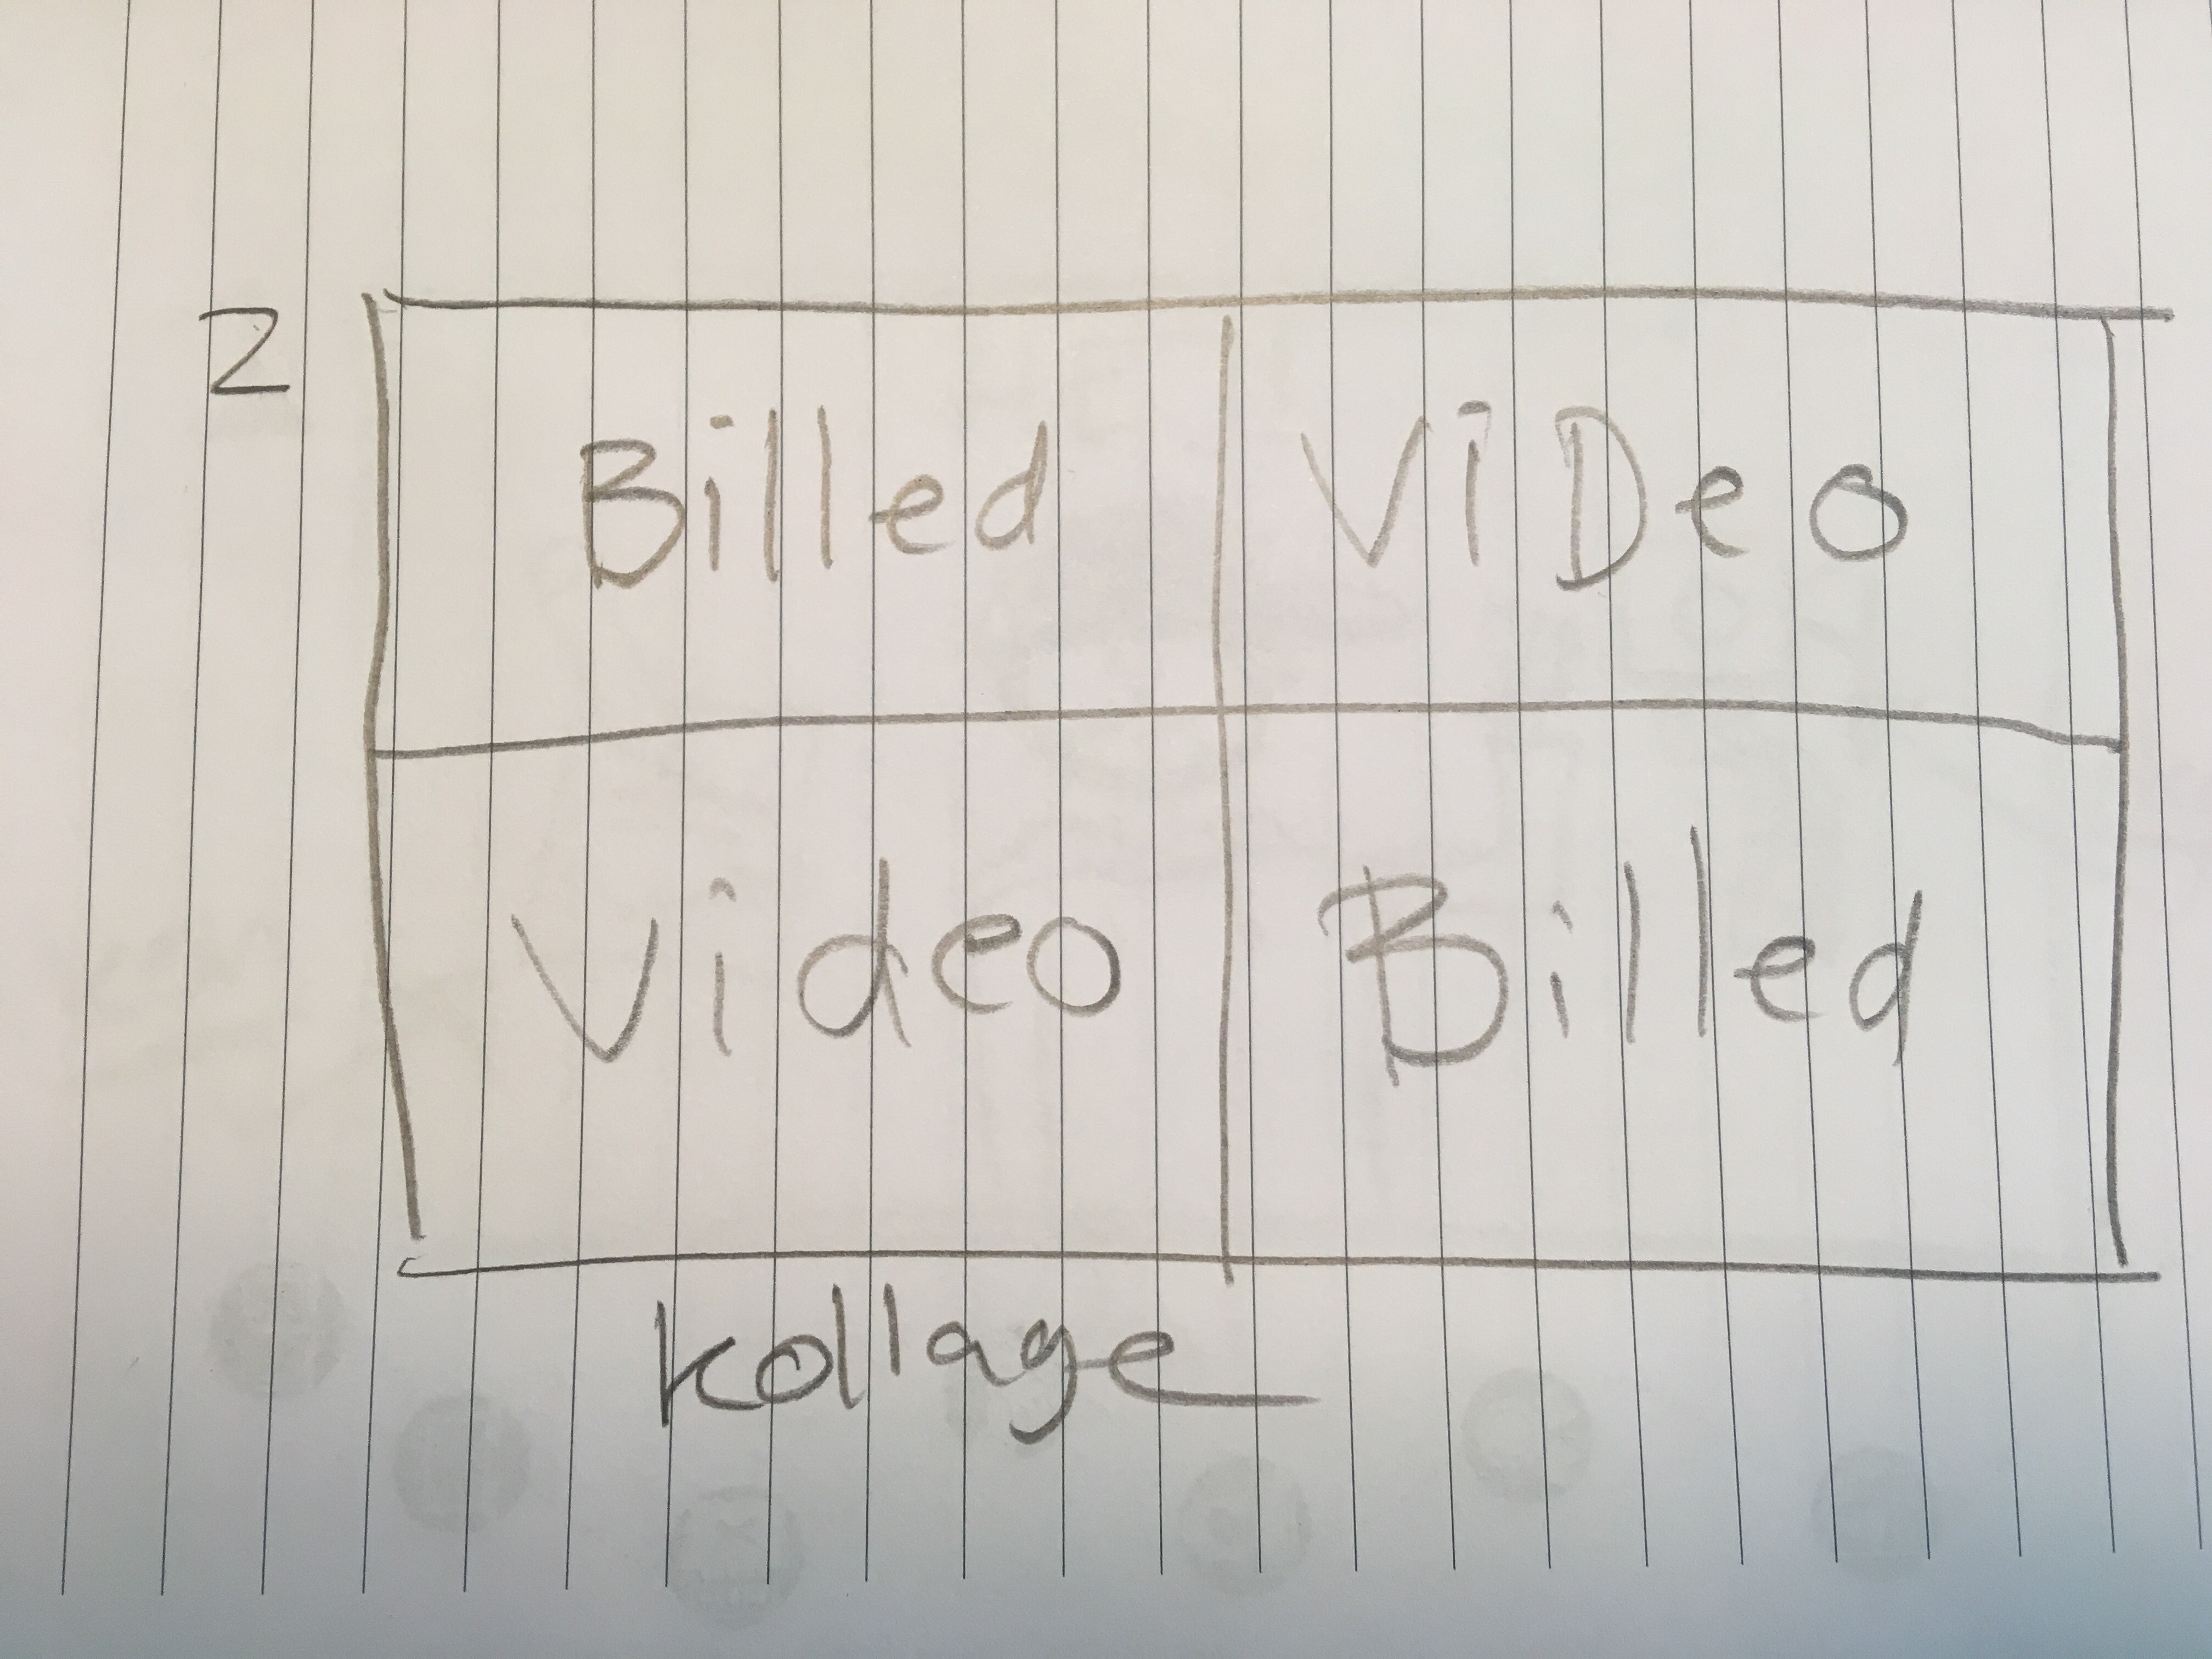 2
Billed ViDeo
Video Billed
kollage